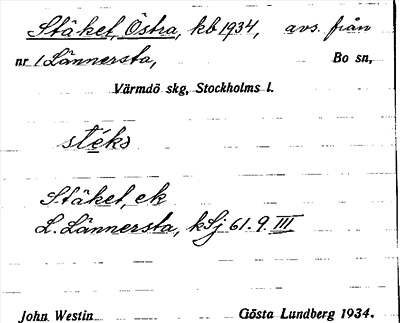 Stäket, Östra, kb 1934, avs. från
nr 1 Lännersta, Bo sn,
Värmdö skg, Stockholms l.
stéks
Stäket, ek
L. Lännersta, kSj 61. 9. III
John Westin Gösta Lundberg 1934.